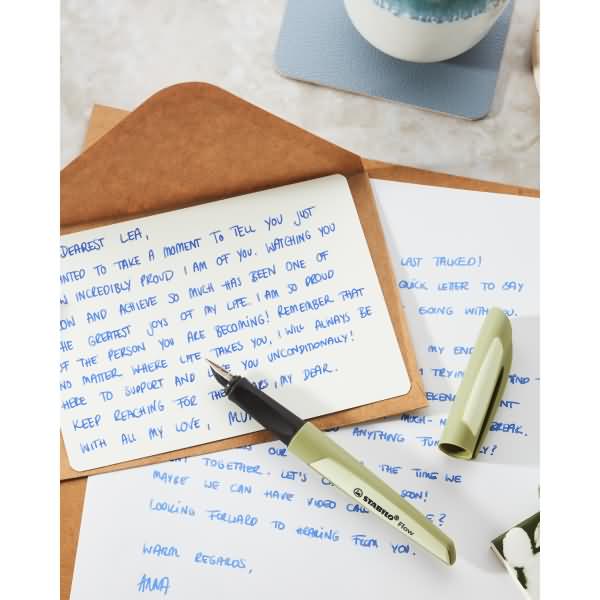 DEAREST LEA,
NTED TO TAKE A MOMENT TO TELL YOU JUST
W INCREDIBLY PROUD I AM OF YOU. WATCHING YOU
OW AND ACHIEVE SO MUCH HAS BEEN ONE OF
HE GREATEST JOYS OF MY LIFE. I AM SO PROUD
OF THE PERSON YOU ARE BECOMING! REMEMBER THAT
NO MATTER WHERE LIFE TAKES YOU, I WILL ALWAYS BE
HERE TO SUPPORT AND YOU UNCONDITIONALLY!
KEEP REACHING FOR THE ARS, MY DEAR.
WITH ALL MY LOVE, MUM
LAST TALKED!
QUICK LETTER TO SAY
GOING WITH YOU.
MY END
TRYING
MUCH- BREAK.
ANYTHING FUN
OUR
TOGETHER. LET'S THE TIME WE
MAYBE WE CAN HAVE VIDEO CALL SOON!
LOOKING FORWARD TO HEARING FROM YOU.
WARM REGARDS,
ANNA
STABILO® Flow